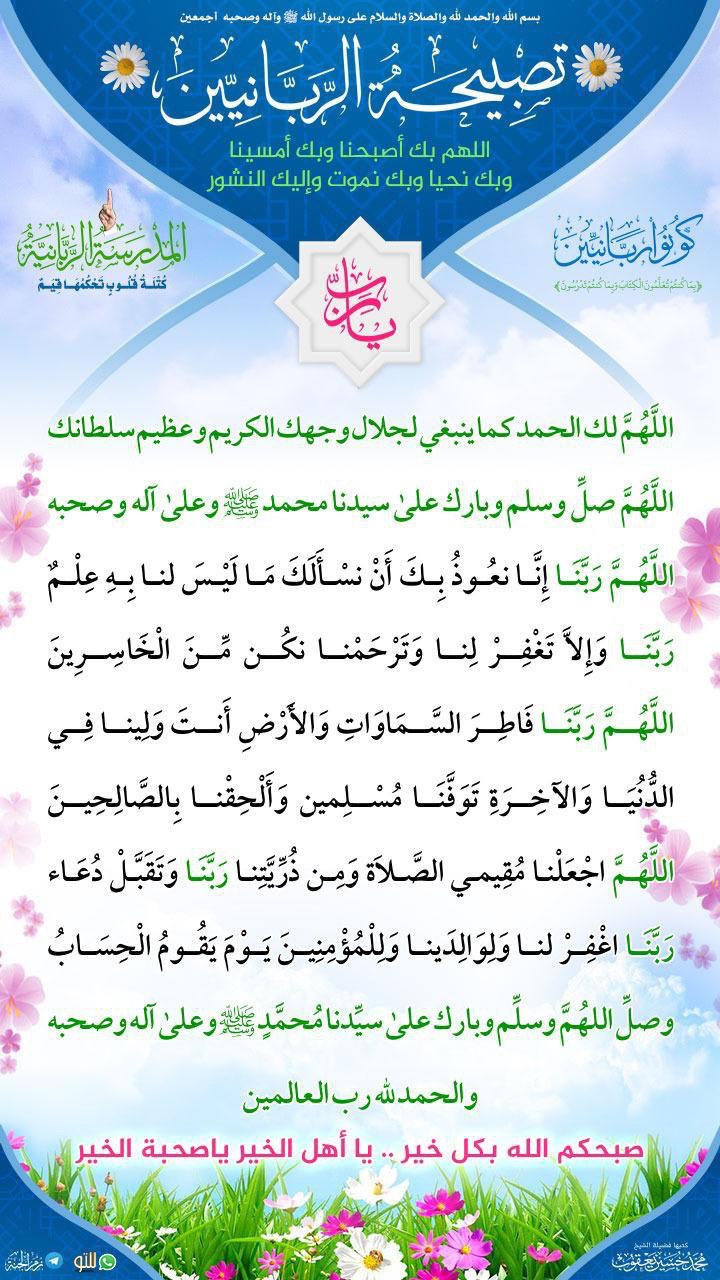 بسم الله والحمد لله والصلاة والسلام على رسول الله ﷺ وآله وصحبه أجمعين
تصبيحة الرَّبَّانِيِّين
اللهم بك أصبحنا وبك أمسينا
وبك نحيا وبك نموت وإليك النشور
كُونُوا رَبَّانِيِّينَ
﴿بِمَا كُنتُمْ تُعَلِّمُونَ الْكِتَابَ وَبِمَا كُنتُمْ تَدْرُسُونَ﴾
المَدْرَسَةُ الرَّبَّانِيَّةُ
كُتْلَةُ قُلُوبٍ تَحْكُمُهَا قِيَمٌ
يا رب
اللَّهُمَّ لك الحمد كما ينبغي لجلال وجهك الكريم وعظيم سلطانك
اللَّهُمَّ صلِّ وسلم وبارك علىٰ سيدنا محمد ﷺ وعلىٰ آله وصحبه
اللَّهُمَّ رَبَّنَا إِنَّا نعُوذُ بِكَ أَنْ نسْأَلَكَ مَا لَيْسَ لنا بِهِ عِلْمٌ
رَبَّنَا وَإِلاَّ تَغْفِرْ لِنا وَتَرْحَمْنا نكُن مِّنَ الْخَاسِرِينَ
اللَّهُمَّ رَبَّنَا فَاطِرَ السَّمَاوَاتِ وَالأَرْضِ أَنتَ وَلِينا فِي
الدُّنُيَا وَالآخِرَةِ تَوَفَّنَا مُسْلِمين وَأَلْحِقْنا بِالصَّالِحِينَ
اللَّهُمَّ اجْعَلْنا مُقِيمي الصَّلاَة وَمِن ذُرِّيَّتِنا رَبَّنَا وَتَقَبَّلْ دُعَاء
رَبَّنَا اغْفِرْ لنا وَلِوَالِدَينا وَلِلْمُؤْمِنِينَ يَوْمَ يَقُومُ الْحِسَابُ
وصلِّ اللهُمَّ وسلِّم وبارك علىٰ سيِّدنا مُحمَّدٍ ﷺ وعلىٰ آله وصحبه
والحمد لله رب العالمين
صبحكم الله بكل خير .. يا أهل الخير ياصحبة الخير
كتبها فضيلة الشيخ
محمد حسين يعقوب
للتو
زمر الجنة